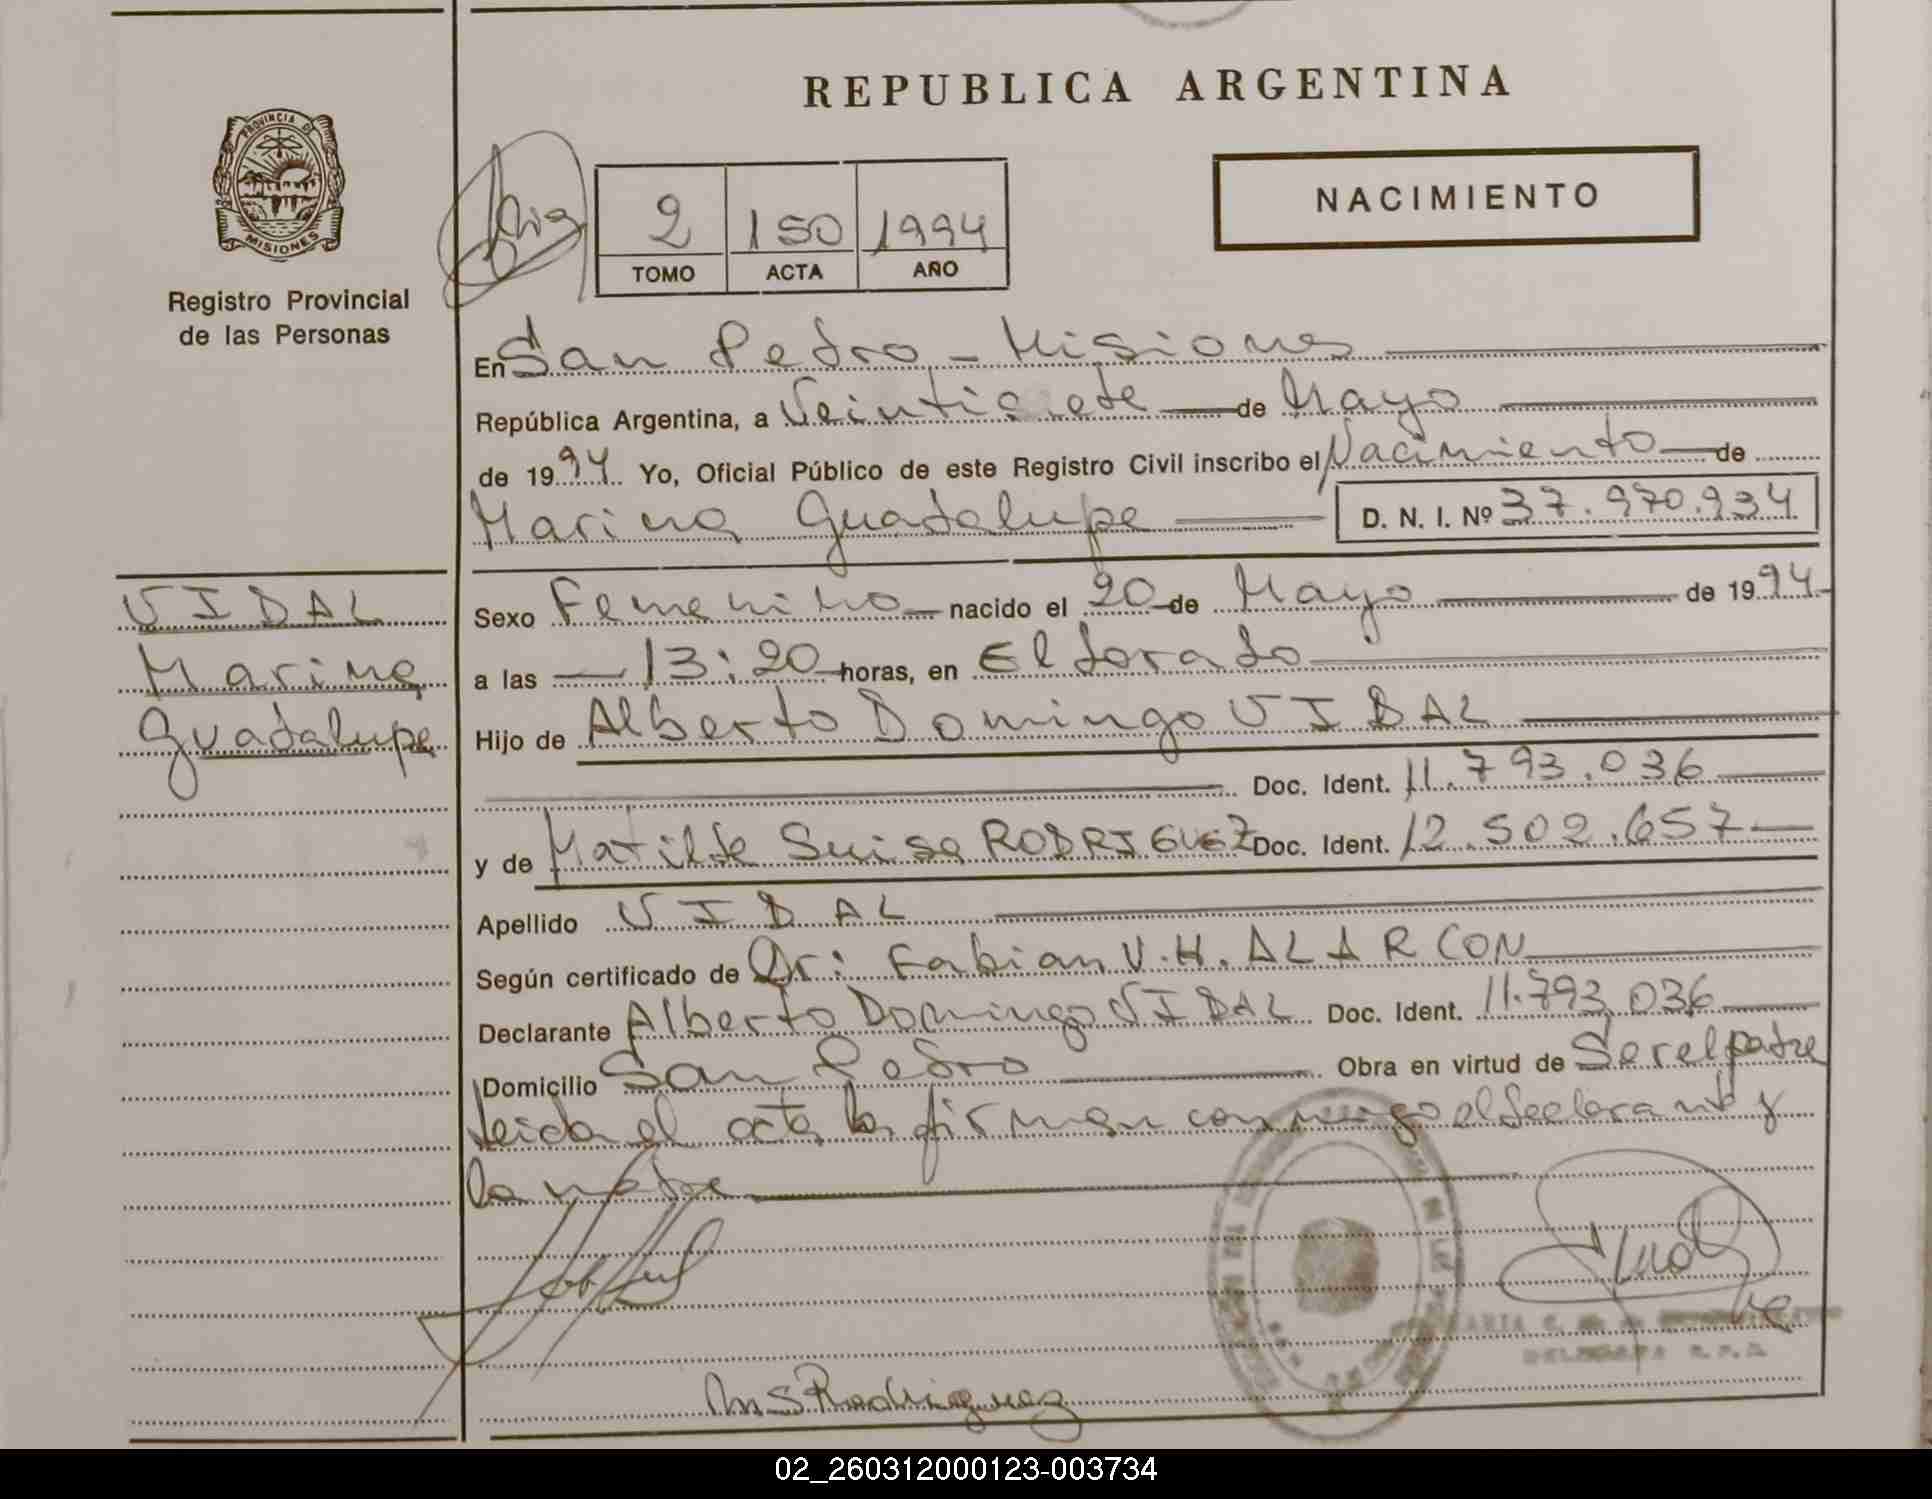 REPUBLICA ARGENTINA
PROVINCIA DE
MISIONES
Registro Provincial
de las Personas
2 150 1994
TOMO ACTA AÑO
NACIMIENTO
En San Pedro - Misiones
República Argentina, a Veintisiete de Mayo
de 1994 Yo, Oficial Público de este Registro Civil inscribo el Nacimiento de
Marina Guadalupe D. N. I. Nº 37.970.934
VIDAL
Marina
Guadalupe
Sexo Femenino nacido el 20 de Mayo de 1994
a las 13:20 horas, en Eldorado
Hijo de Alberto Domingo VIDAL
Doc. Ident. 11.793.036
y de Matilde Suisa RODRIGUEZ Doc. Ident. 12.502.657
Apellido VIDAL
Según certificado de Dr: Fabian V.H. ALARCON
Declarante Alberto Domingo VIDAL Doc. Ident. 11.793.036
Domicilio San Pedro Obra en virtud de Ser el padre
Leida el acta la firman conmigo el declarante y
la madre
MARIA C.
DELEGADA R.P.P.
M S Rodriguez
02_260312000123-003734